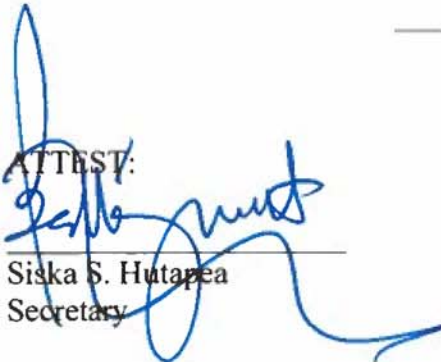 ATTEST:
Siska S. Hutapea
Secretary